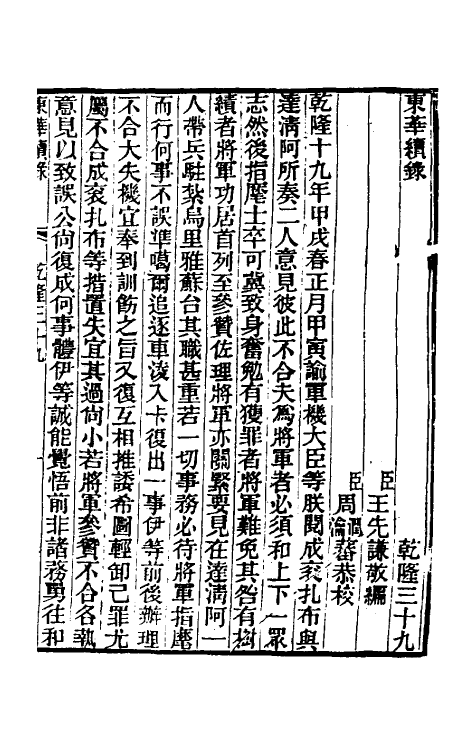 東華續錄　乾隆三十九
臣王先謙敬編
臣周潤蕃　瀹蕃恭校
乾隆十九年甲戌春正月甲寅諭軍機大臣等朕閱成袞扎布與
達淸阿所奏二人意見彼此不合夫爲將軍者必須和上下一眾
志然後指麾士卒可冀致身奮勉有獲罪者將軍難免其咎有樹
績者將軍功居首列至參贊佐理將軍亦關緊要見在達淸阿一
人帶兵駐紮烏里雅蘇台其職甚重若一切事務必待將軍指麾
而行何事不誤準噶爾追逐車淩入卡復出一事伊等前後辦理
不合大失機宜奉到訓飭之旨又復互相推諉希圖輕卸己罪尤
屬不合成袞扎布等措置失宜其過尙小若將軍參贊不合各執
意見以致誤公尙復成何事體伊等誠能覺悟前非諸務勇往和
東華續錄　乾隆三十九　一